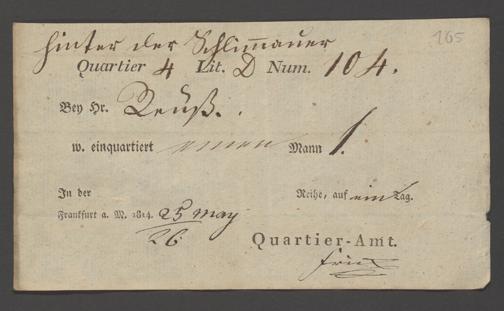 165
hinter der Schlimmauer
Quartier 4 Lit. D Num. 104.
Bey Hr. Reuß.
w. einquartiert einen Mann 1.
In der Reihe, auf ein Tag.
Frankfurt a. M. 1814. 25 May
26
Quartier-Amt.